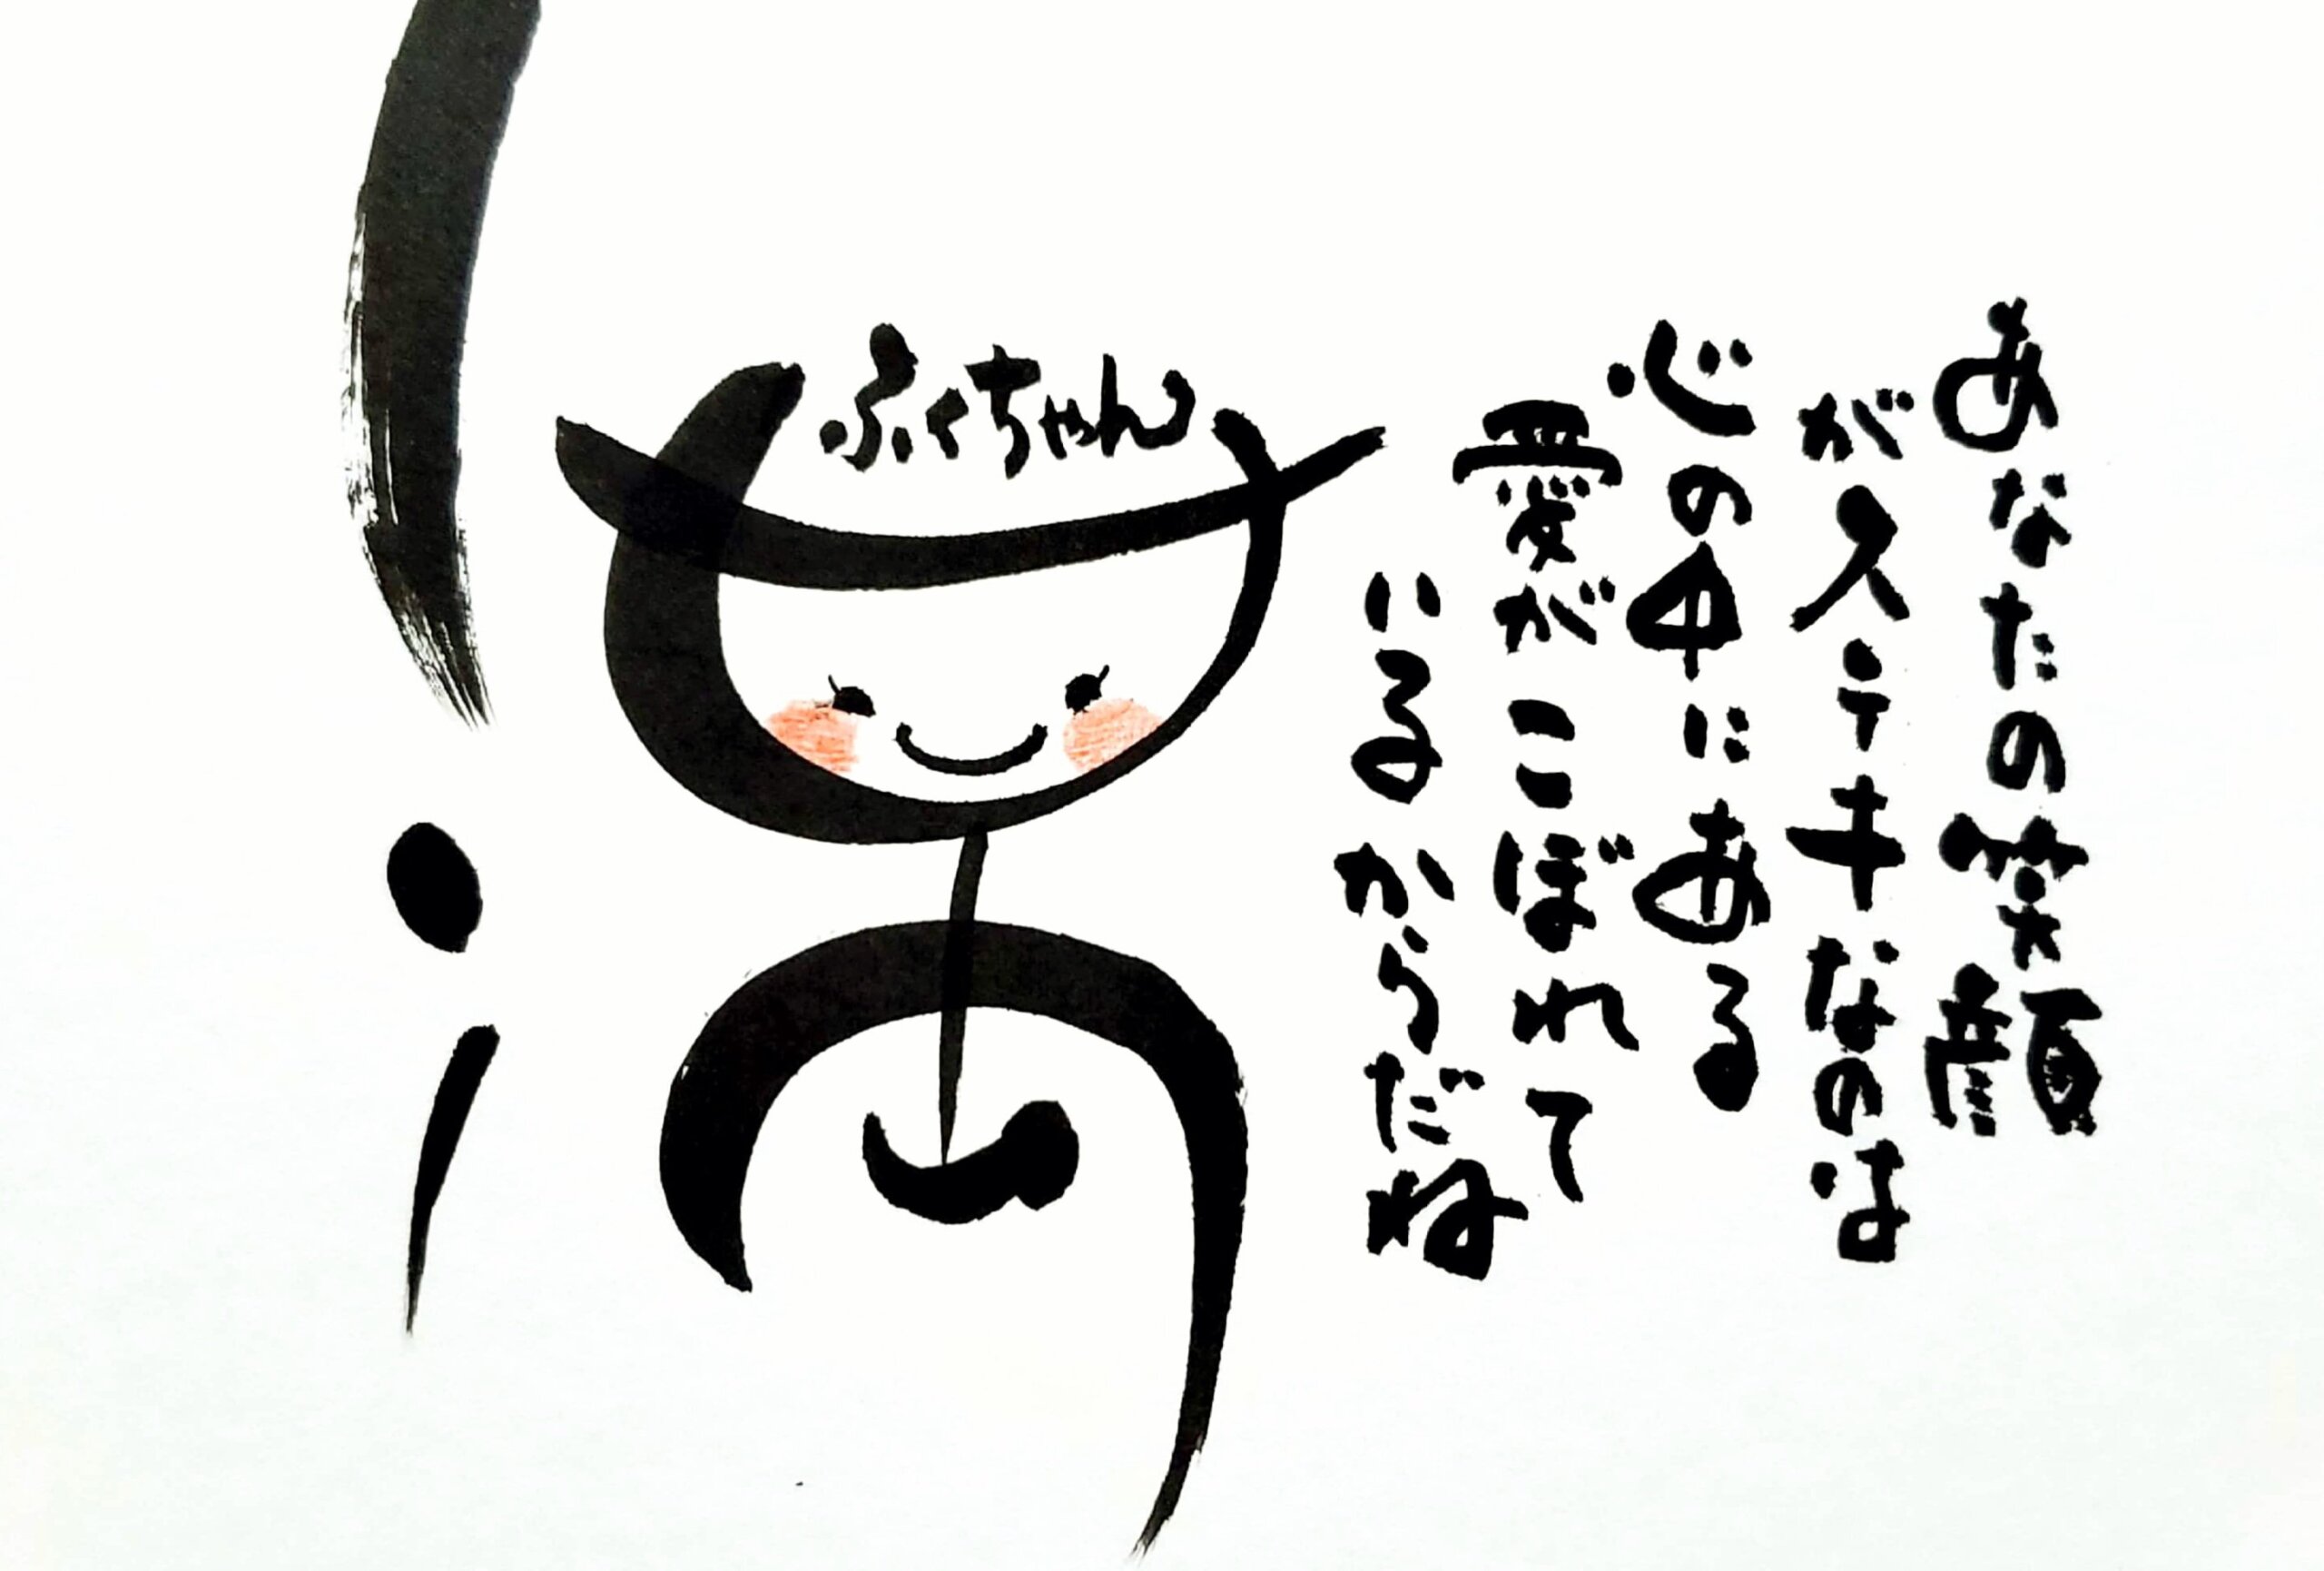 あなたの笑顔
がステキなのは
心の中にある
愛がこぼれて
いるからだね
ふくちゃん